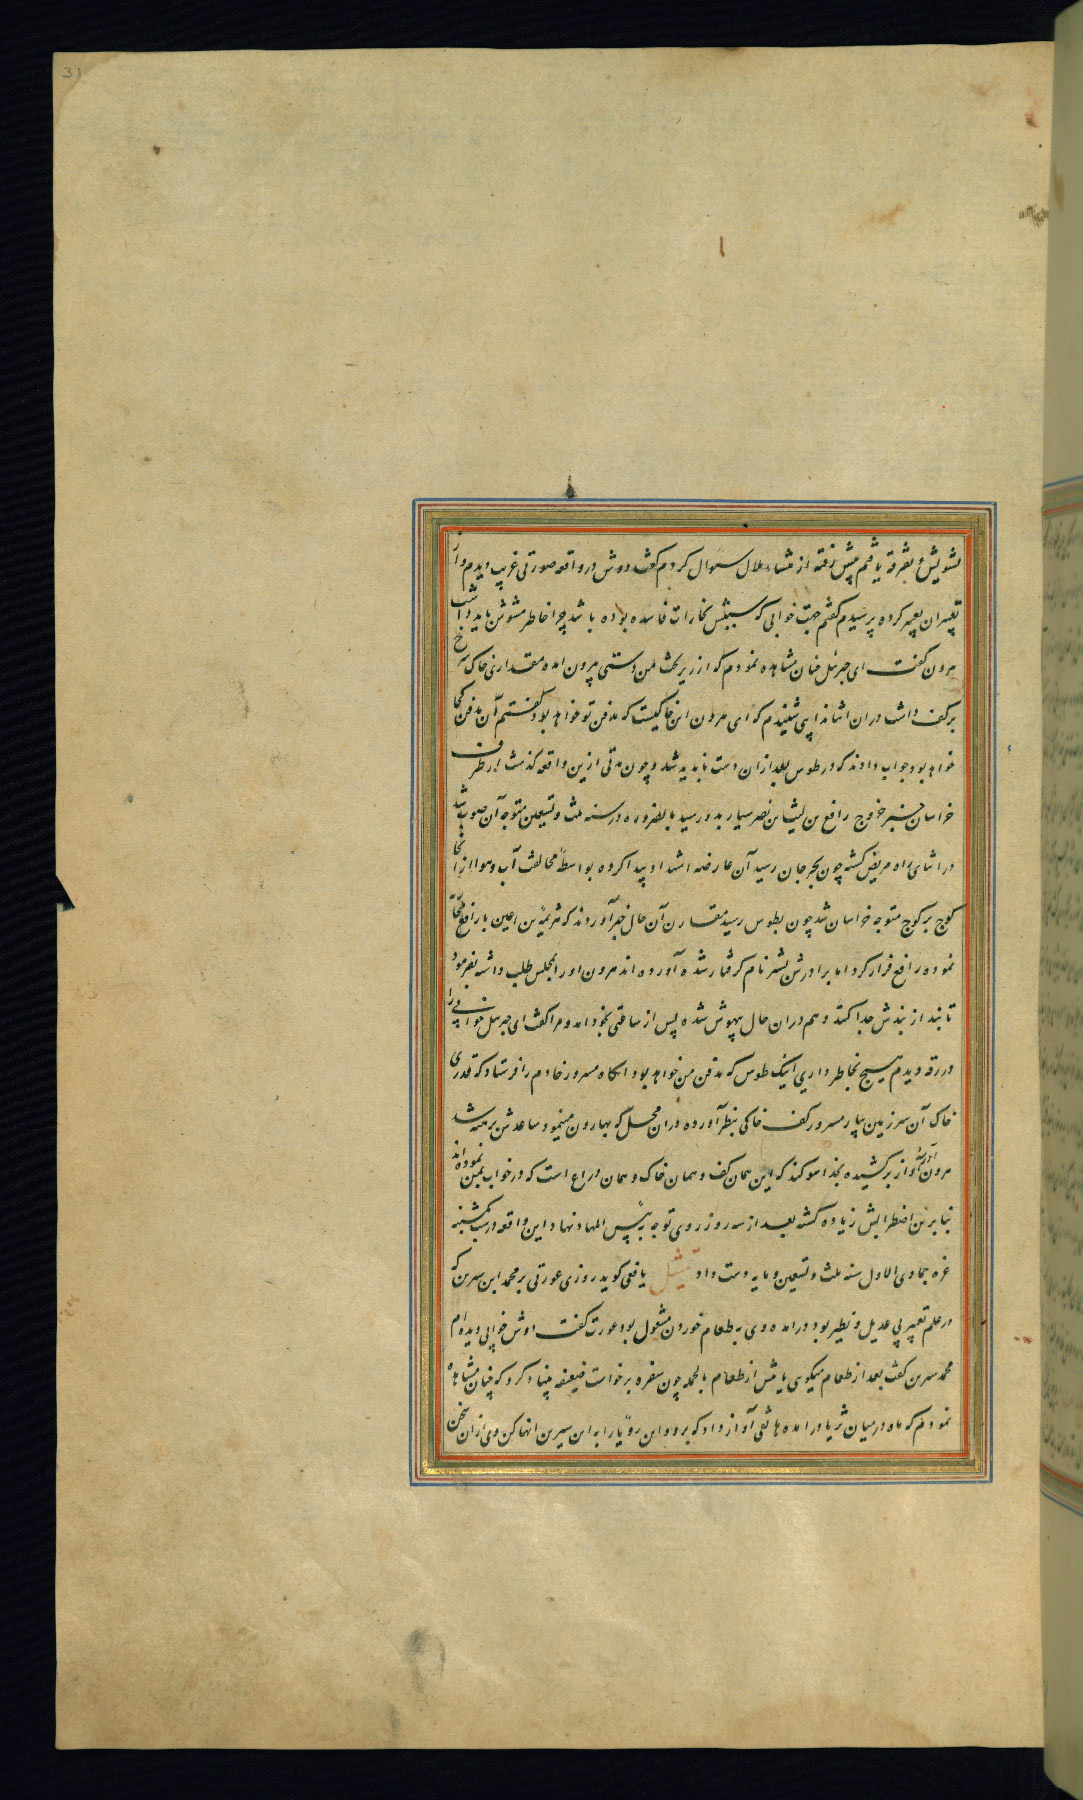 31
تشویش و تفرقه یافتم پیش رفته از منشاء ملال سؤال کردم گفت دوش در واقعه صورتی غریب دیدم و از
تعبیر آن پرسیدم گفتم جهت خوابی که سببش بخارات فاسده بوده باشد چرا خاطر مشوش باید داشت
هرون گفت ای جبرئیل چنان مشاهده نمودم که از زیر تخت من دستی بیرون آمده مقداری خاک سرخ
بر کف داشت در آن اثنا ندایی شنیدم که ای هرون این خاکیست که مدفن تو خواهد بود گفتم آن مدفن کجا
خواهد بود جواب دادند که در طوس بعد از آن دست ناپدید شد و چون مدتی ازین واقعه گذشت از طرف
خراسان خبر خروج رافع بن لیث بن نصر سیار بدو رسید بالضروره در سنه ثلث و تسعین متوجه آن صوب شد
در اثنای راه مریض گشته چون بجرجان رسید آن عارضه اشتداد پیدا کرده بواسطهٔ مخالفت آب و هوا از آنجا
کوچ بر کوچ متوجه خراسان شد چون بطوس رسید مقارن آن حال خبر آوردند که هرثمة بن اعین با رافع
نموده رافع فرار کرد اما برادرش بشیر نام گرفتار شده آورده‌اند هرون او را بمجلس طلب داشته بفرمود
تا بند از بندش جدا کنند و هم در آن حال بیهوش شده پس از ساعتی بخود آمد و مرا گفت ای جبرئیل خوابی را
در رقه دیدم هیچ بخاطر داری اینک طوس که مدفن من خواهد بود آنگاه مسرور خادم را فرستاد که قدری
خاک آن سرزمین بیار مسرور کف خاکی بنظر آورده در آن محل که بهارون مینمود ساعدش برهنه شد
هرون آواز برکشیده بخدا سوگند که این همان کف و همان خاک و همان ذراع است که در خواب بمن نموده‌اند
بنابر این اضطرابش زیاده گشته بعد از سه روز روی توجه به بئس المهاد نهاد و این واقعه در شب شنبه
غره جمادی الاول سنه ثلث و تسعین و مایه دست داد تمثیل یافعی گوید روزی عورتی بر محمد ابن سیرین که
در علم تعبیر بی عدیل و نظیر بود درآمد وی به طعام خوردن مشغول بود عورت گفت دوش خوابی دیده‌ام
محمد سیرین گفت بعد از طعام میگویی یا پیش از طعام بالجمله چون سفره برخاست ضعیفه بنیاد کرد که چنان مشاهده
نمودم که ماه در میان ثریا درآمده هاتفی آواز داد که برو و این رؤیا را به ابن سیرین انها کن وی از آن سخن